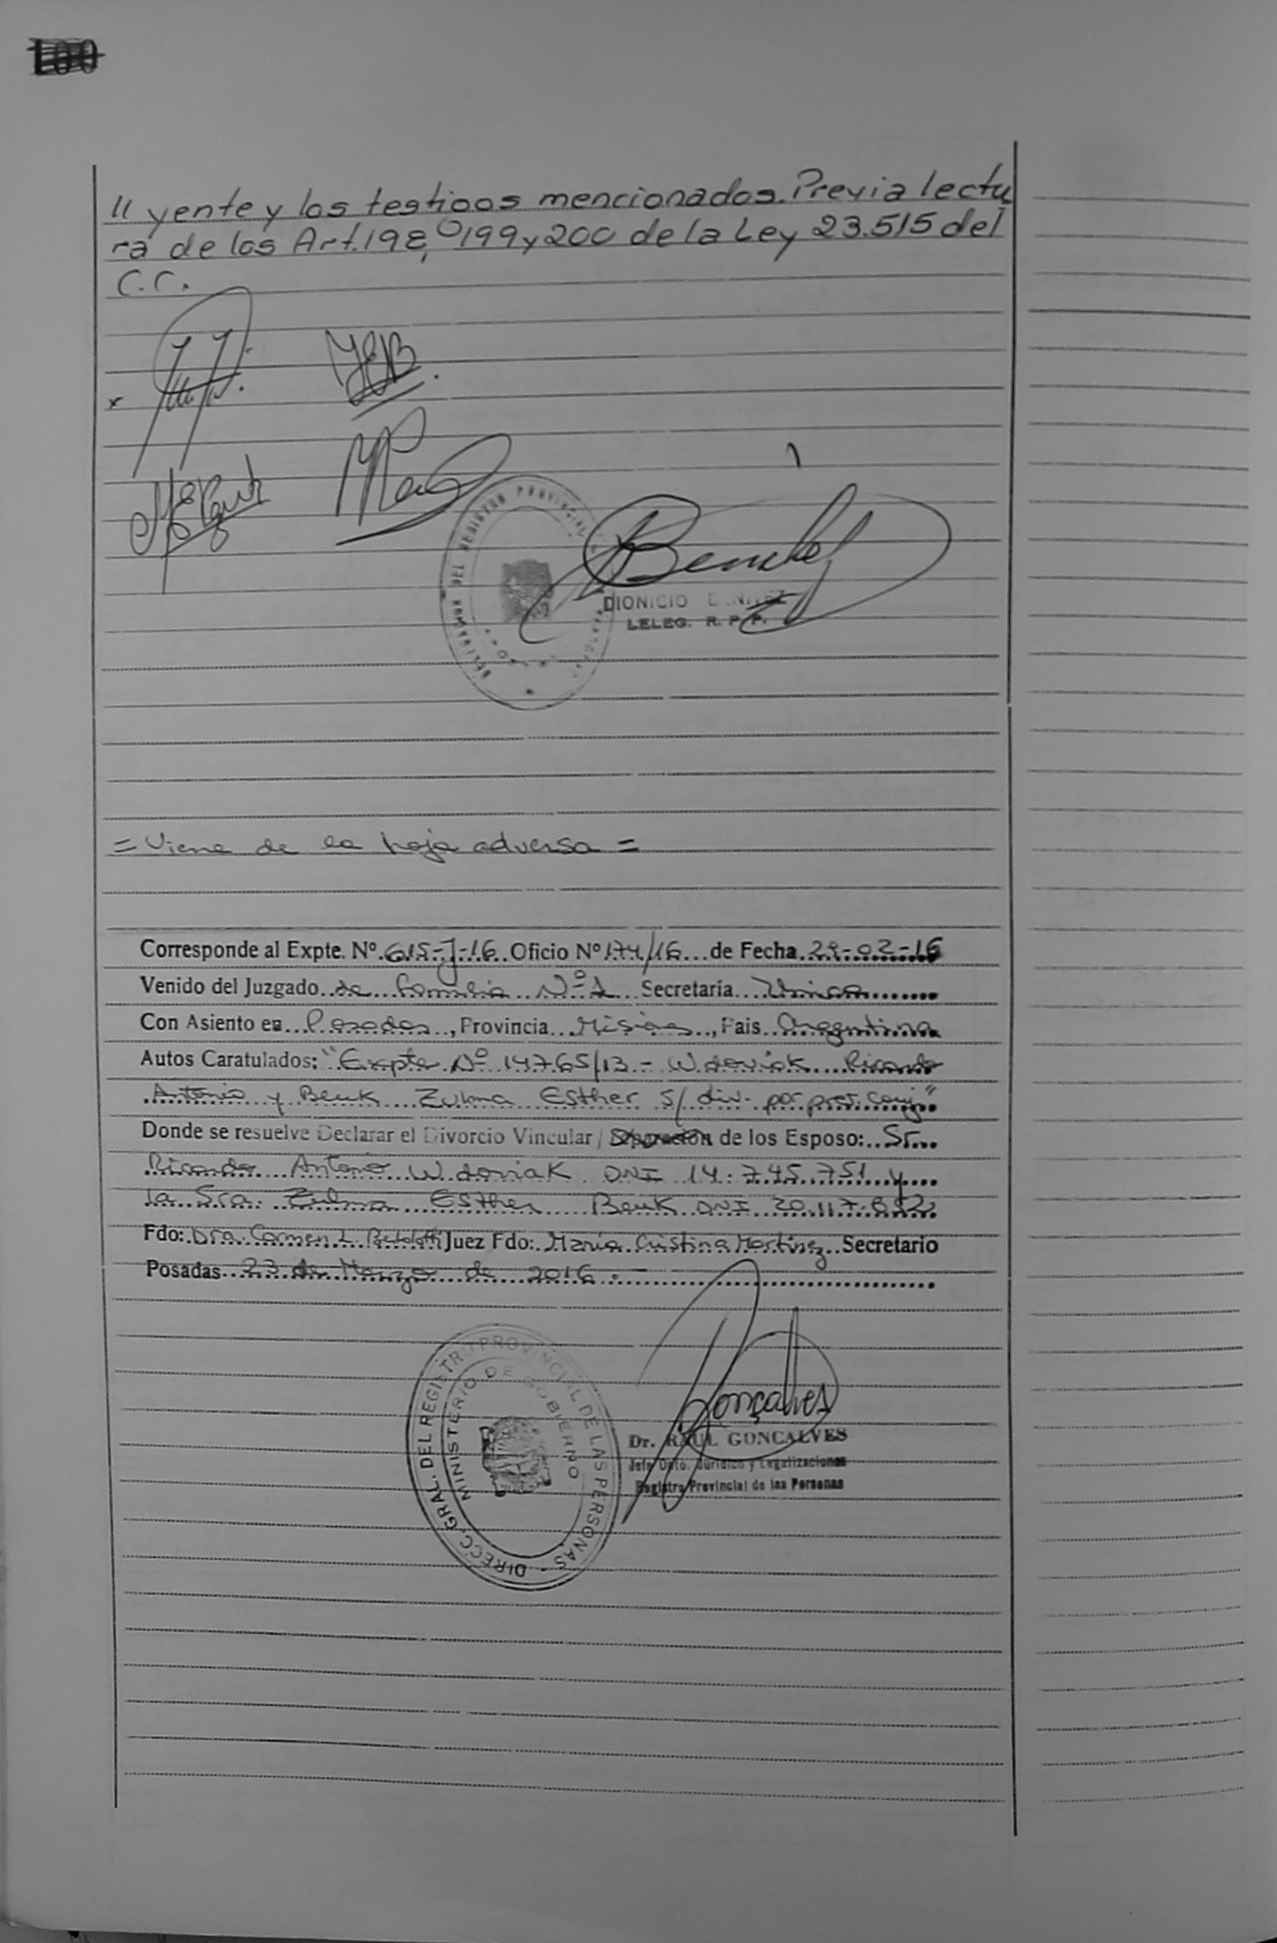 100
// yente y los testigos mencionados. Previa lectu
ra de los Art. 198, 199 y 200 de la Ley 23.515 del
C.C.
DELEGACION DEL REGISTRO PROVINCIAL
DIONICIO BENITEZ
LELEG. R. P. P.
= Viene de la hoja adversa =
Corresponde al Expte. Nº 615-J-16 Oficio Nº 174/16 de Fecha 29-02-16
Venido del Juzgado de Familia Nº 1 Secretaría Unica
Con Asiento en Posadas, Provincia Misiones, Pais Argentina
Autos Caratulados: "Expte Nº 14765/13 - Wdoviak Ricardo
Antonio y Beuk Zulma Esther s/ div. por pres. conj."
Donde se resuelve Declarar el Divorcio Vincular / Separación de los Esposo: Sr.
Ricardo Antonio Wdoviak DNI 14.745.751 y
la Sra. Zulma Esther Beuk DNI
Fdo: Dra. Carmen L. Juez Fdo: María Cristina Martinez Secretario
Posadas 23 de Marzo de 2016.-
DIRECC. GRAL. DEL REGISTRO PROVINCIAL DE LAS PERSONAS -
MINISTERIO DE GOBIERNO
Gonçalves
Dr. RAUL GONCALVES
Jefe Dpto. Jurídico y Legalizaciones
Registro Provincial de las Personas